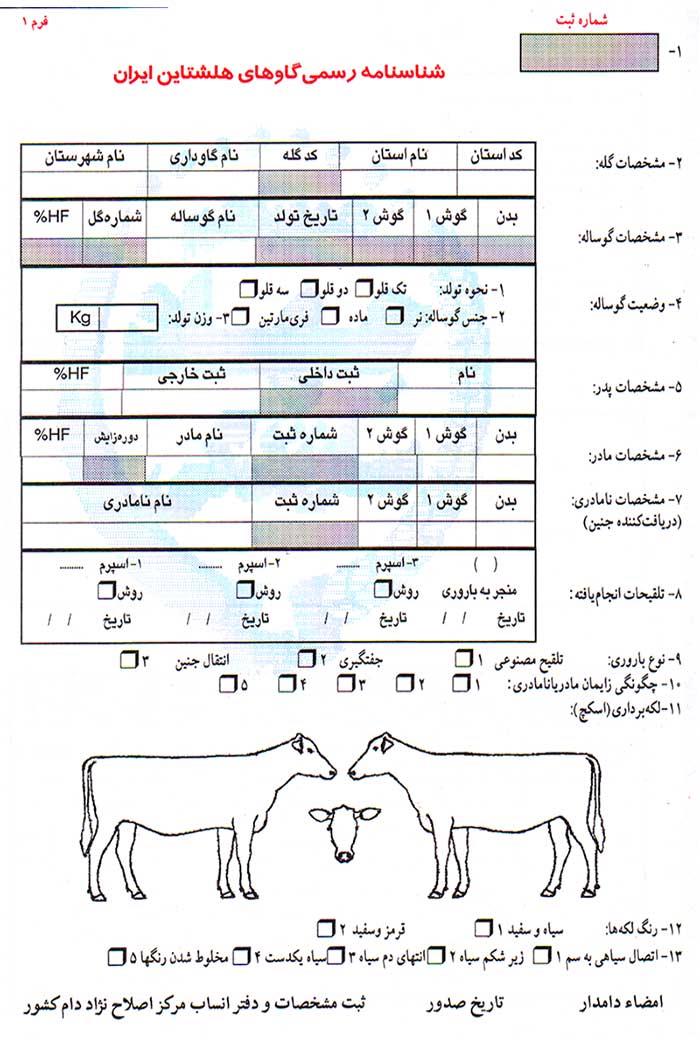 فرم ۱
شماره ثبت
۱-
شناسنامه رسمی گاوهای هلشتاین ایران
۲- مشخصات گله:
کد استان نام استان کد گله نام گاوداری نام شهرستان
۳- مشخصات گوساله:
بدن گوش ۱ گوش ۲ تاریخ تولد نام گوساله شماره گل %HF
۴- وضعیت گوساله:
۱- نحوه تولد: تک قلو دو قلو سه قلو
۲- جنس گوساله: نر ماده فری‌مارتین ۳- وزن تولد: Kg
۵- مشخصات پدر:
نام ثبت داخلی ثبت خارجی %HF
۶- مشخصات مادر:
بدن گوش ۱ گوش ۲ شماره ثبت نام مادر دوره زایش %HF
۷- مشخصات نامادری:
(دریافت‌کننده جنین)
بدن گوش ۱ گوش ۲ شماره ثبت نام نامادری
۸- تلقیحات انجام‌یافته:
( ) ۳- اسپرم ........ ۲- اسپرم ........ ۱- اسپرم ........
منجر به باروری روش روش روش
تاریخ / / تاریخ / / تاریخ / / تاریخ / /
۹- نوع باروری: تلقیح مصنوعی ۱ جفتگیری ۲ انتقال جنین ۳
۱۰- چگونگی زایمان مادر یا نامادری: ۱ ۲ ۳ ۴ ۵
۱۱- لکه‌برداری (اسکچ):
۱۲- رنگ لکه‌ها: سیاه و سفید ۱ قرمز و سفید ۲
۱۳- اتصال سیاهی به سم ۱ زیر شکم سیاه ۲ انتهای دم سیاه ۳ سیاه یکدست ۴ مخلوط شدن رنگها ۵
امضاء دامدار تاریخ صدور ثبت مشخصات و دفتر انساب مرکز اصلاح نژاد دام کشور